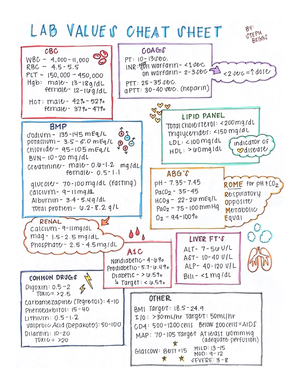 LAB VALUES CHEAT SHEET
BY:
STEPH
BEGGS
CBC
WBC - 4,000-11,000
RBC - 4.5-5.5
PLT - 150,000-450,000
Hgb: male - 13-18g/dL
female - 12-16g/dL
HCT: male - 42%-52%
female - 37%-47%
COAGS
PT: 10-13sec.
INR: not on warfarin - <1 sec
on warfarin - 2-3 sec
PTT: 25-35 sec.
aPTT: 30-40 sec. (heparin)
<2 sec = ↑dose
BMP
Sodium - 135-145 mEq/L
Potassium - 3.5-5.0 mEq/L
Chloride - 95-105 mEq/L
BUN - 10-20 mg/dL
Creatinine - male: 0.6-1.2 mg/dL
female: 0.5-1.1
glucose - 70-100 mg/dL (fasting)
Calcium - 9-11mg/dL
Albumin - 3.4-5.4g/dL
Total protein - 6.2-8.2 g/L
LIPID PANEL
Total Cholesterol <200mg/dL
Triglycerides <150mg/dL
LDL: <100 mg/dL
HDL: >60mg/dL
indicator of
ABG's
pH - 7.35-7.45
PaCO₂ - 35-45
HCO₃ - 22-26 mEq/L
PaO₂ - 75-100 mmHg
O₂ - 94-100%
ROME for pH & CO2
Respiratory
Opposite
Metabolic
Equal
RENAL
Calcium - 9-11mg/dL
mag - 1.5-2.5 mg/dL
Phosphate - 2.5-4.5mg/dL
A1C
Nondiabetic - 4-6%
Prediabetic - 5.7-6.4%
Diabetic - >6.5%
↳ Target: <6.5%
LIVER FT'S
ALT - 7-56 U/L
AST - 10-40 U/L
ALP - 40-120 U/L
Bili - <1 mg/dL
COMMON DRUGS
Digoxin: 0.5-2
TOXIC = >2.5
Carbamazepine (Tegretol): 4-10
Phenobarbitol: 15-40
Lithium: 0.5-1.2
Valproic Acid (Depakote): 50-100
Dilantin: 10-20
TOXIC = >20
OTHER
BMI Target: 18.5-24.9
I/O: >30mL/hr Target: 50mL/hr
CD4: 500-1200cells Below 200cells = AIDS
MAP: 70-105 Target: At least 60mmHg
(adequate perfusion)
Glascow: Best = 15
MILD: 13-15
MOD: 9-12
SEVERE: 3-8